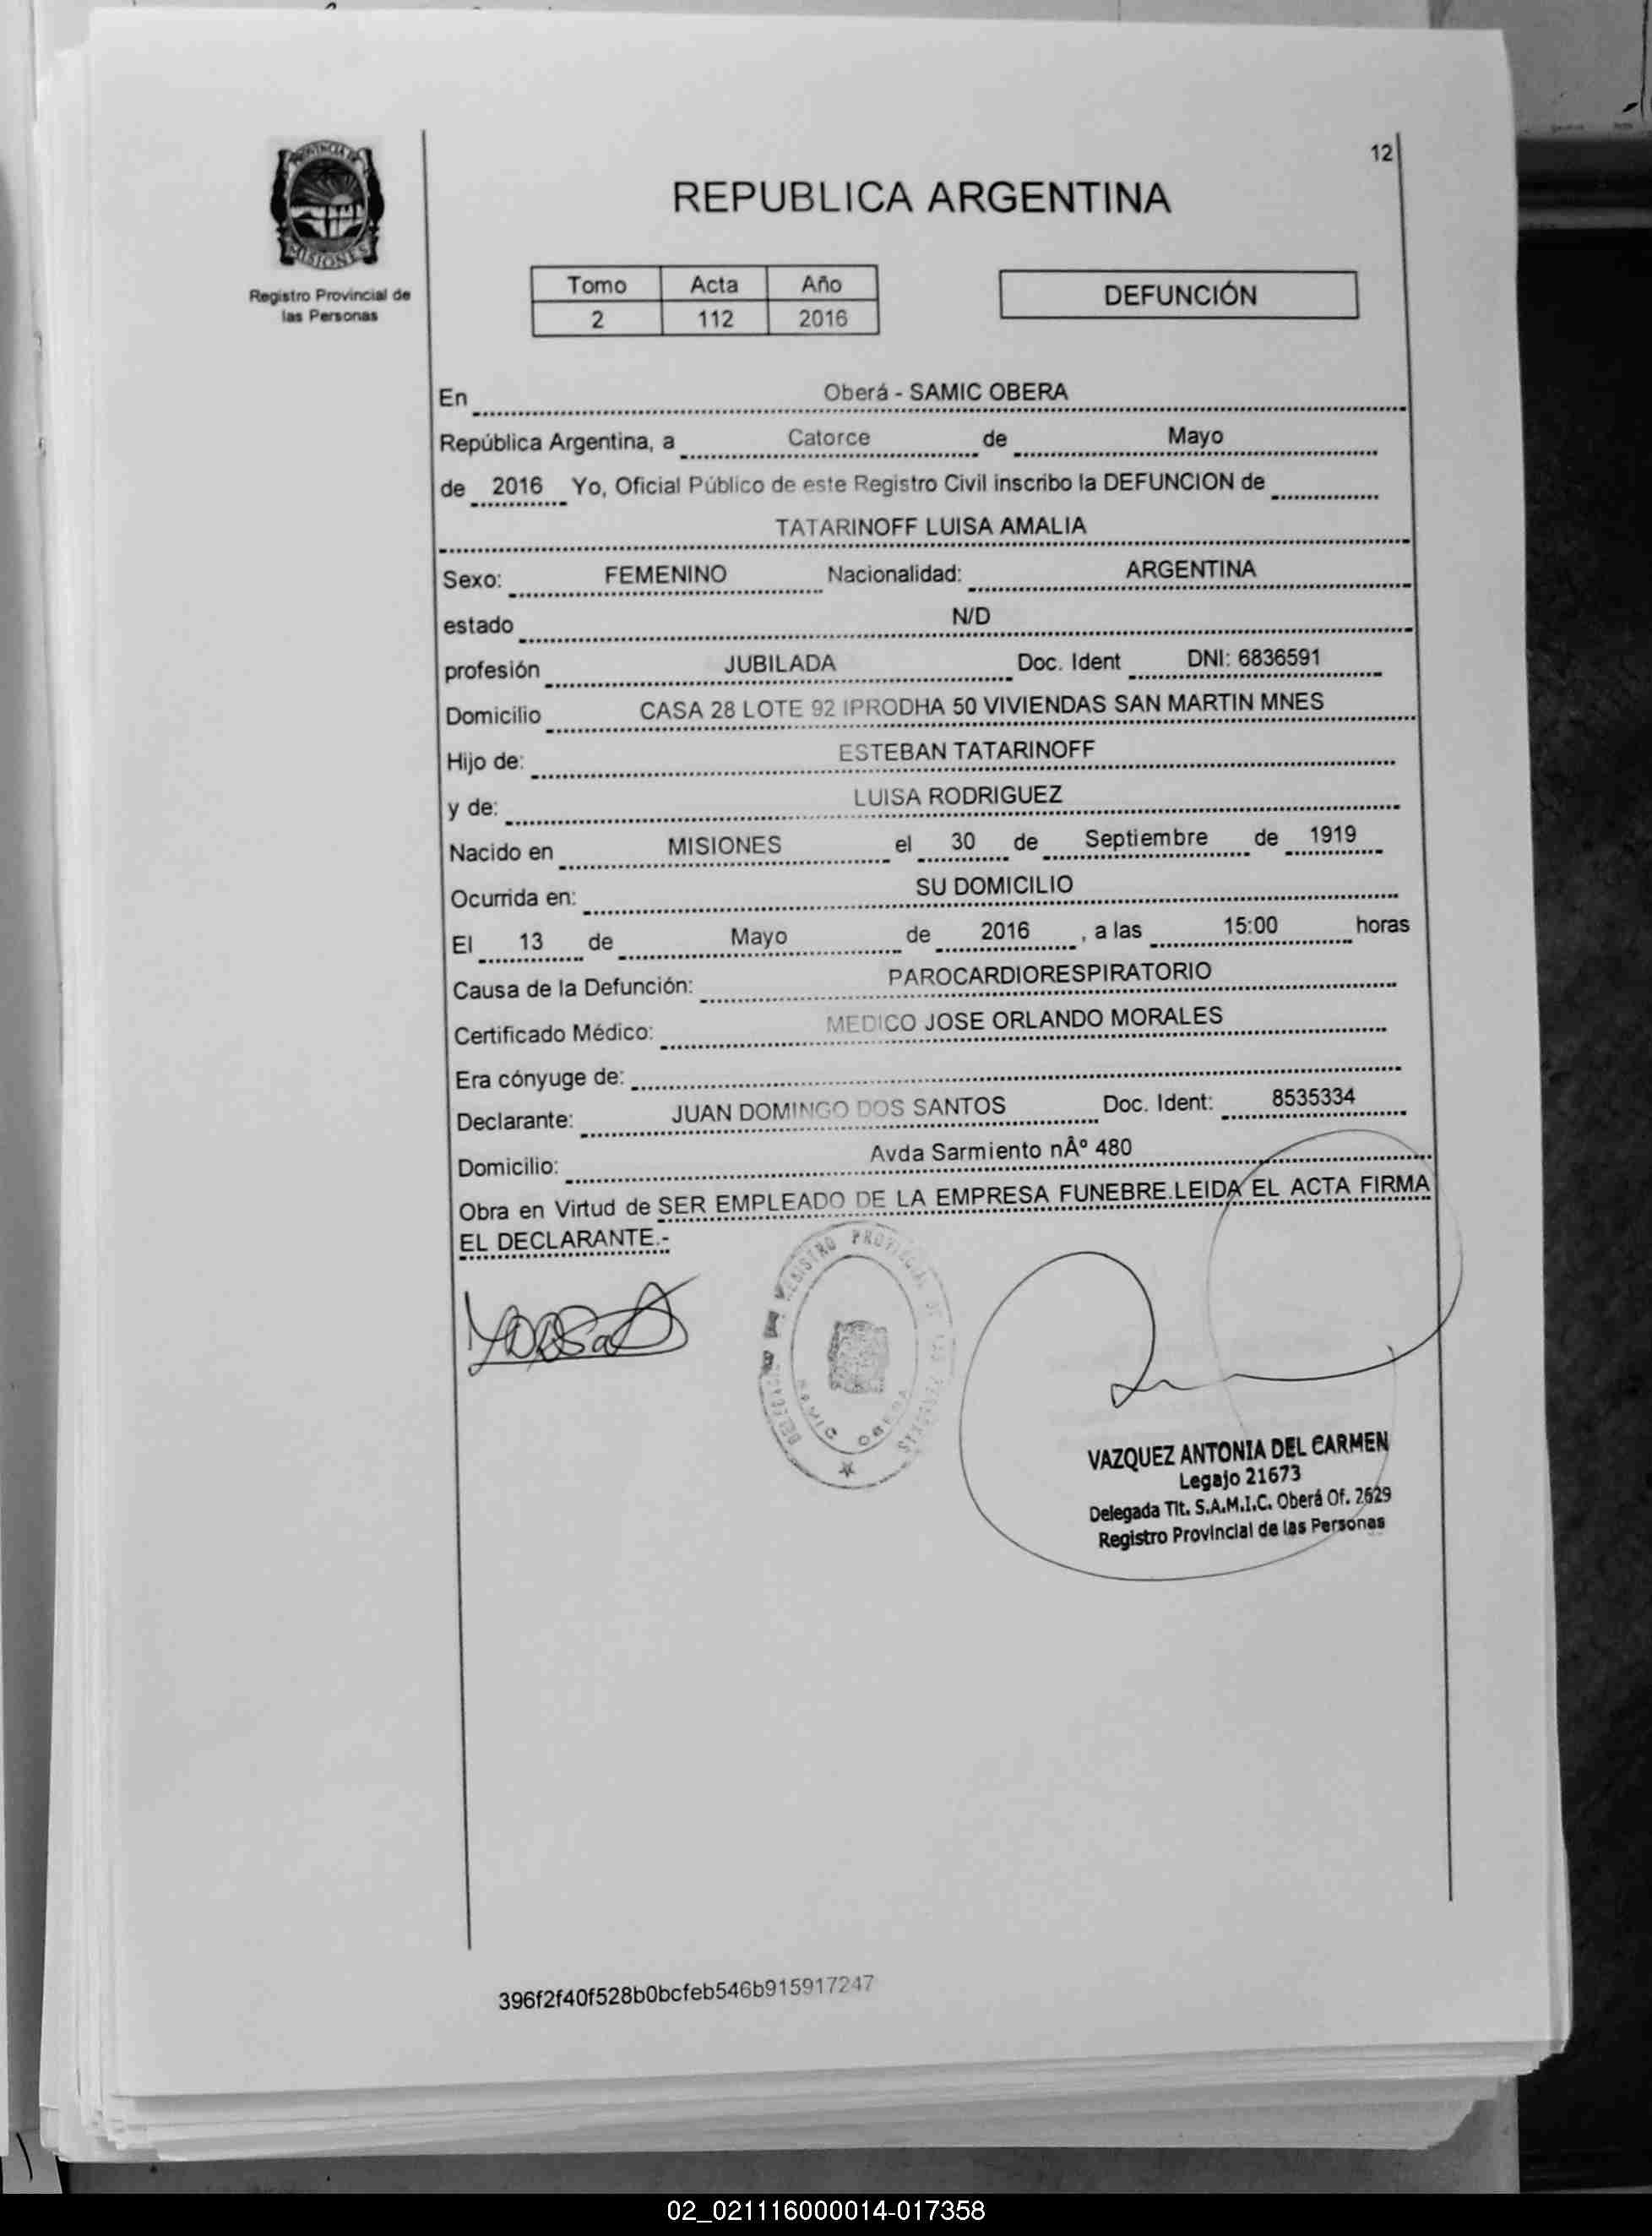 12
PROVINCIA DE
MISIONES
Registro Provincial de
las Personas
REPUBLICA ARGENTINA
Tomo Acta Año
2 112 2016
DEFUNCIÓN
En Oberá - SAMIC OBERA
República Argentina, a Catorce de Mayo
de 2016 Yo, Oficial Público de este Registro Civil inscribo la DEFUNCION de
TATARINOFF LUISA AMALIA
Sexo: FEMENINO Nacionalidad: ARGENTINA
estado N/D
profesión JUBILADA Doc. Ident DNI: 6836591
Domicilio CASA 28 LOTE 92 IPRODHA 50 VIVIENDAS SAN MARTIN MNES
Hijo de: ESTEBAN TATARINOFF
y de: LUISA RODRIGUEZ
Nacido en MISIONES el 30 de Septiembre de 1919
Ocurrida en: SU DOMICILIO
El 13 de Mayo de 2016 , a las 15:00 horas
Causa de la Defunción: PAROCARDIORESPIRATORIO
Certificado Médico: MEDICO JOSE ORLANDO MORALES
Era cónyuge de:
Declarante: JUAN DOMINGO DOS SANTOS Doc. Ident: 8535334
Domicilio: Avda Sarmiento nÂº 480
Obra en Virtud de SER EMPLEADO DE LA EMPRESA FUNEBRE.LEIDA EL ACTA FIRMA
EL DECLARANTE.-
REGISTRO PROVINCIAL DE LAS PERSONAS
SAMIC OBERA
VAZQUEZ ANTONIA DEL CARMEN
Legajo 21673
Delegada Tit. S.A.M.I.C. Oberá Of. 2629
Registro Provincial de las Personas
396f2f40f528b0bcfeb546b915917247
02_021116000014-017358